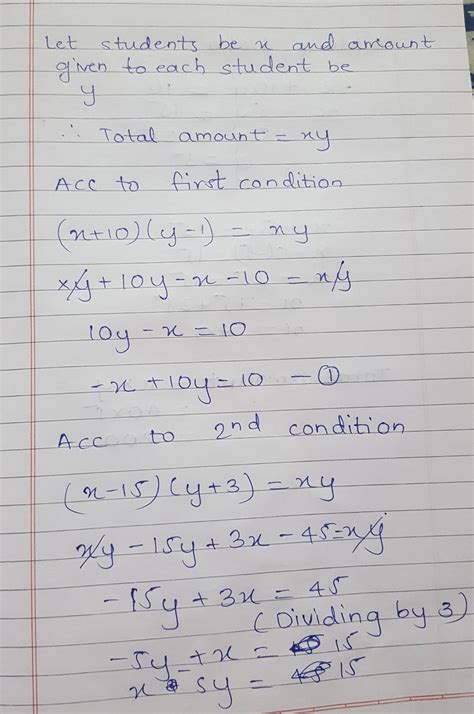 Let students be x and amount
given to each student be
y
∴ Total amount = xy
Acc to first condition
(x+10)(y-1) = xy
xy + 10y - x - 10 = xy
10y - x = 10
-x + 10y = 10 - ①
Acc to 2nd condition
(x-15)(y+3) = xy
xy - 15y + 3x - 45 = xy
-15y + 3x = 45
(Dividing by 3)
-5y + x = 15
x - 5y = 15